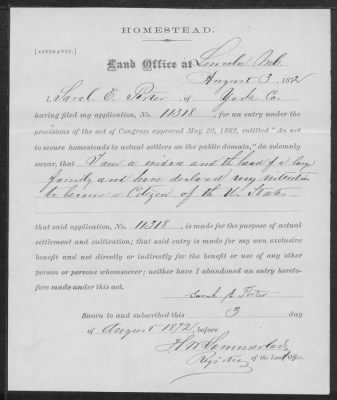 HOMESTEAD.
[AFFIDAVIT.]
Land Office at Lincoln Neb.
August 3, 1872
I, Sarah E. Porter, of York Co.
having filed my application, No. 11318, for an entry under the
provisions of the act of Congress approved May 20, 1862, entitled "An act
to secure homesteads to actual settlers on the public domain," do solemnly
swear, that I am a widow and the head of a large
family and have declared my intention
to become a Citizen of the U. States
that said application, No. 11318, is made for the purpose of actual
settlement and cultivation; that said entry is made for my own exclusive
benefit and not directly or indirectly for the benefit or use of any other
person or persons whomsoever; neither have I abandoned an entry hereto-
fore made under this act.
Sarah E. Porter
Sworn to and subscribed this 3 day
of August 1872, before
Register of the Land Office.